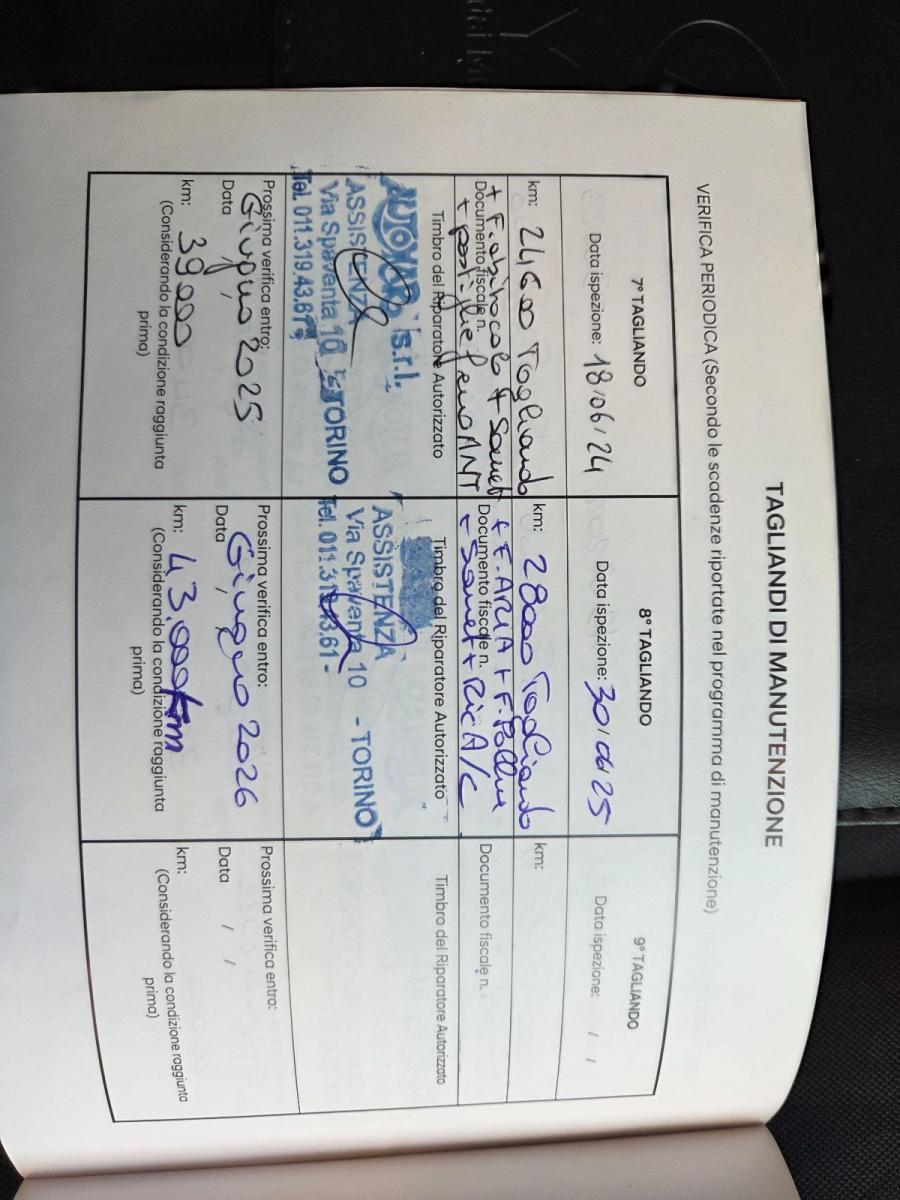 TAGLIANDI DI MANUTENZIONE
VERIFICA PERIODICA (Secondo le scadenze riportate nel programma di manutenzione)
7° TAGLIANDO
Data ispezione: 18/06/24
km: 24600 Tagliando
+ F. abitacolo + Sanet
Documento fiscale n.
+ pastiglie freno ANT
Timbro del Riparatore Autorizzato
s.r.l.
ASSISTENZA
Via Spaventa 10 - TORINO
Tel. 011.319.43.61
Prossima verifica entro:
Data Giugno 2025
km: 39000
(Considerando la condizione raggiunta
prima)
8° TAGLIANDO
Data ispezione: 30/06/25
km: 28000 Tagliando
+ F. ARIA + F. Polline
Documento fiscale n.
+ Sanet + Ric A/C
Timbro del Riparatore Autorizzato
ASSISTENZA
Via Spaventa 10 - TORINO
Tel. 011.319.43.61 -
Prossima verifica entro:
Data Giugno 2026
km: 43.000 km
(Considerando la condizione raggiunta
prima)
9° TAGLIANDO
Data ispezione: / /
km:
Documento fiscale n.
Timbro del Riparatore Autorizzato
Prossima verifica entro:
Data / /
km:
(Considerando la condizione raggiunta
prima)